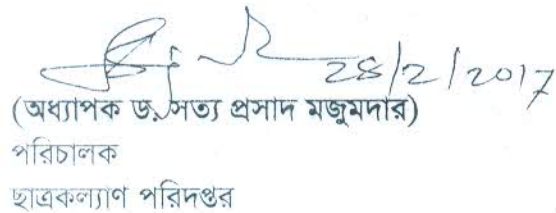 28/2/2017
(অধ্যাপক ড. সত্য প্রসাদ মজুমদার)
পরিচালক
ছাত্রকল্যাণ পরিদপ্তর